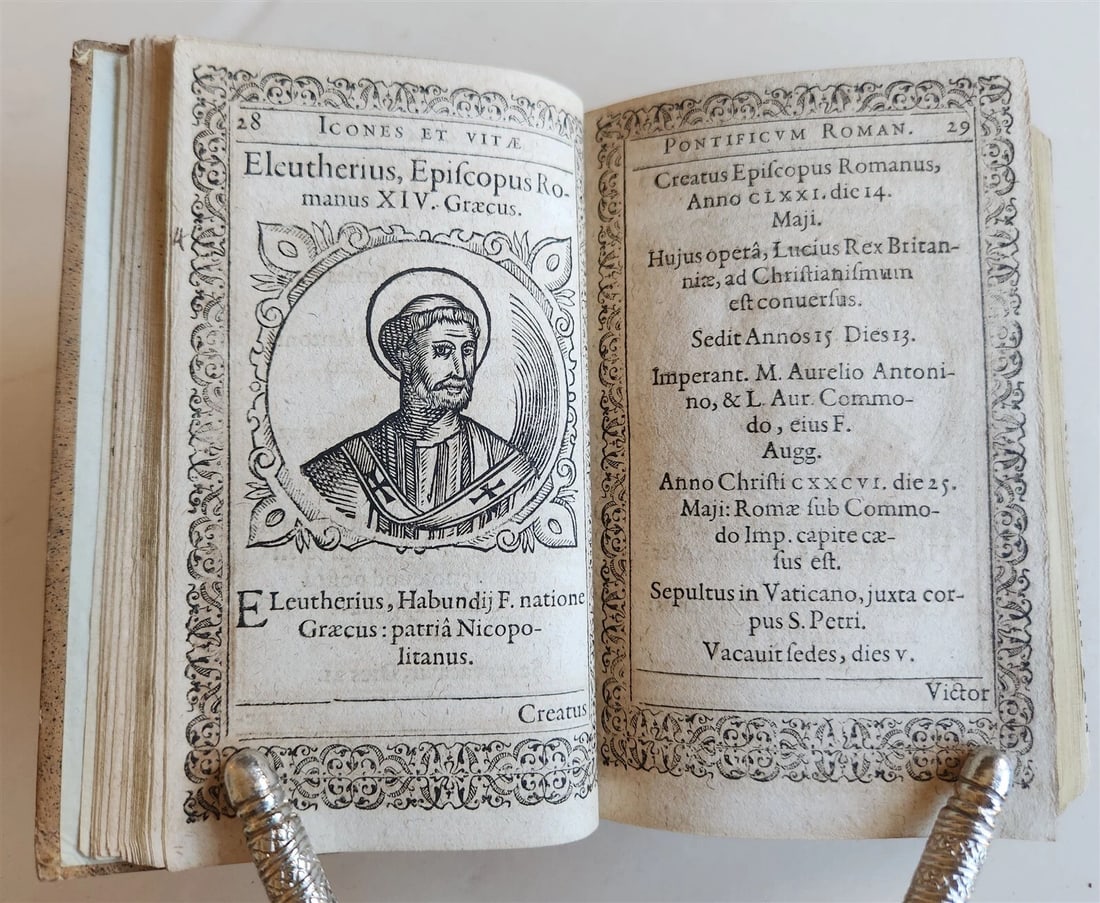 28 ICONES ET VITÆ
Eleutherius, Epiſcopus Ro-
manus XIV. Græcus.
ELeutherius, Habundij F. natione
Græcus: patriâ Nicopo-
litanus.
Creatus
PONTIFICVM ROMAN. 29
Creatus Epiſcopus Romanus,
Anno CLXXI. die 14.
Maji.
Hujus operâ, Lucius Rex Britan-
niæ, ad Chriſtianiſmum
eſt conuerſus.
Sedit Annos 15 Dies 13.
Imperant. M. Aurelio Antoni-
no, & L. Aur. Commo-
do, eius F.
Augg.
Anno Chriſti CXXCVI. die 25.
Maji: Romæ ſub Commo-
do Imp. capite cæ-
ſus eſt.
Sepultus in Vaticano, juxta cor-
pus S. Petri.
Vacauit ſedes, dies v.
Victor